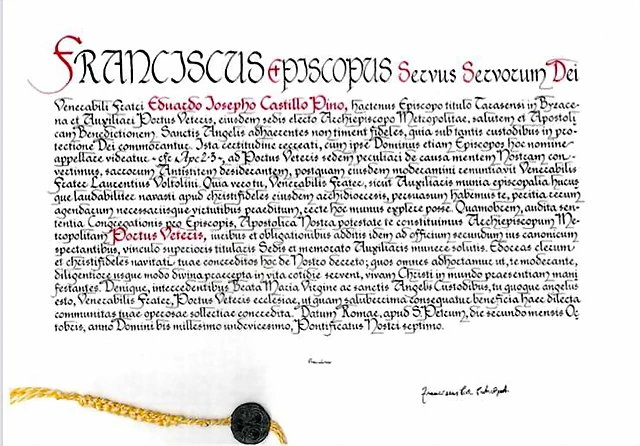 FRANCISCUS EPISCOPUS Servus Servorum Dei
Venerabili Fratri Eduardo Iosepho Castillo Pino, hactenus Episcopo titulo Tarasensi in Byzace-
na et Auxiliari Portus Veteris, eiusdem sedis electo Archiepiscopo Metropolitae, salutem et Apostoli
cam Benedictionem. Sanctis Angelis adhaerentes non timent fideles, quia sub tantis custodibus in pro-
tectione Dei commorantur. Ista certitudine erecti, cum ipse Dominus etiam Episcopos hoc nomine
appellare videatur -cfr Apc 2-3-, ad Portus Veteris sedem peculiari de causa mentem Nostram con-
vertimus, sacrorum Antistitem desiderantem, postquam eiusdem moderamini renuntiavit Venerabilis
Frater Laurentius Voltolini. Quia vero tu, Venerabilis Frater, sicut Auxiliaris munia episcopalia hucus
que laudabiliter navasti apud christifideles eiusdem archidioecesis, persuasum habemus te, peritia rerum
agendarum necessariisque virtutibus praeditum, recte hoc munus explere posse. Quamobrem, audita sen-
tentia Congregationis pro Episcopis, Apostolica Nostra potestate te constituimus Archiepiscopum Me-
tropolitam Portus Veteris, iuribus et obligationibus additis idem ad officium secundum ius canonicum
spectantibus, vinculo superioris titularis Sedis et memorato Auxiliaris munere solutis. Edoceas clerum
et christifideles navitati tuae concreditos hoc de Nostro decreto; quos omnes adhortamur ut, te moderante,
diligentiore usque modo divina praecepta in vita cotidie servent, vivam Christi in mundo praesentiam mani
festantes. Denique, intercedentibus Beata Maria Virgine ac sanctis Angelis Custodibus, tu quoque angelus
esto, Venerabilis Frater, Portus Veteris ecclesiae, ut quam saluberrima consequatur beneficia haec dilecta
communitas tuae operosae sollertiae concredita. Datum Romae, apud S. Petrum, die secundo mensis Oc
tobris, anno Domini bis millesimo undevicesimo, Pontificatus Nostri septimo.
Franciscus